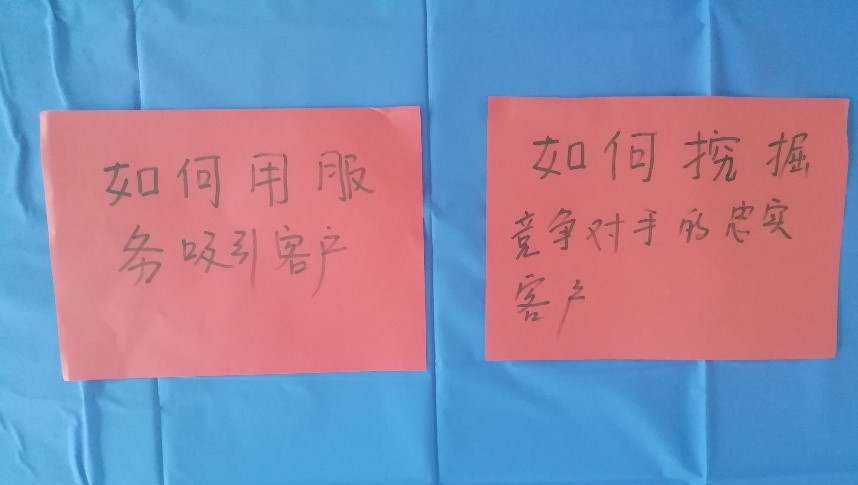 如何用服
务吸引客户
如何挖掘
竞争对手的忠实
客户